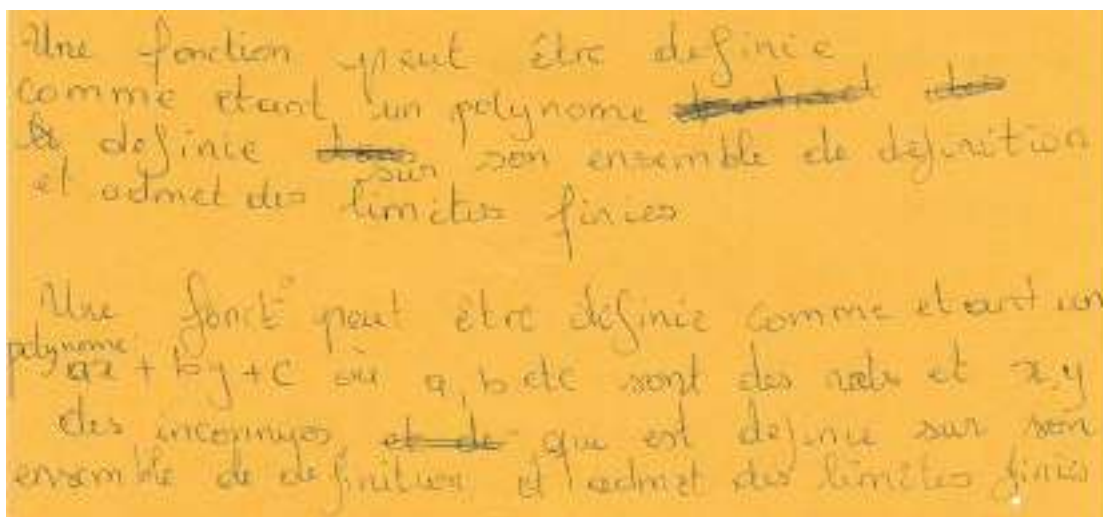 Une fonction peut être definie
comme etant un polynome
definie sur son ensemble de definition
et admet des limites finies
Une fonct° peut être definie comme etant un
polynome
ax + by + c où a, b etc sont des réels et x, y
des inconnues que est definie sur son
ensemble de definition et admet des limites finies